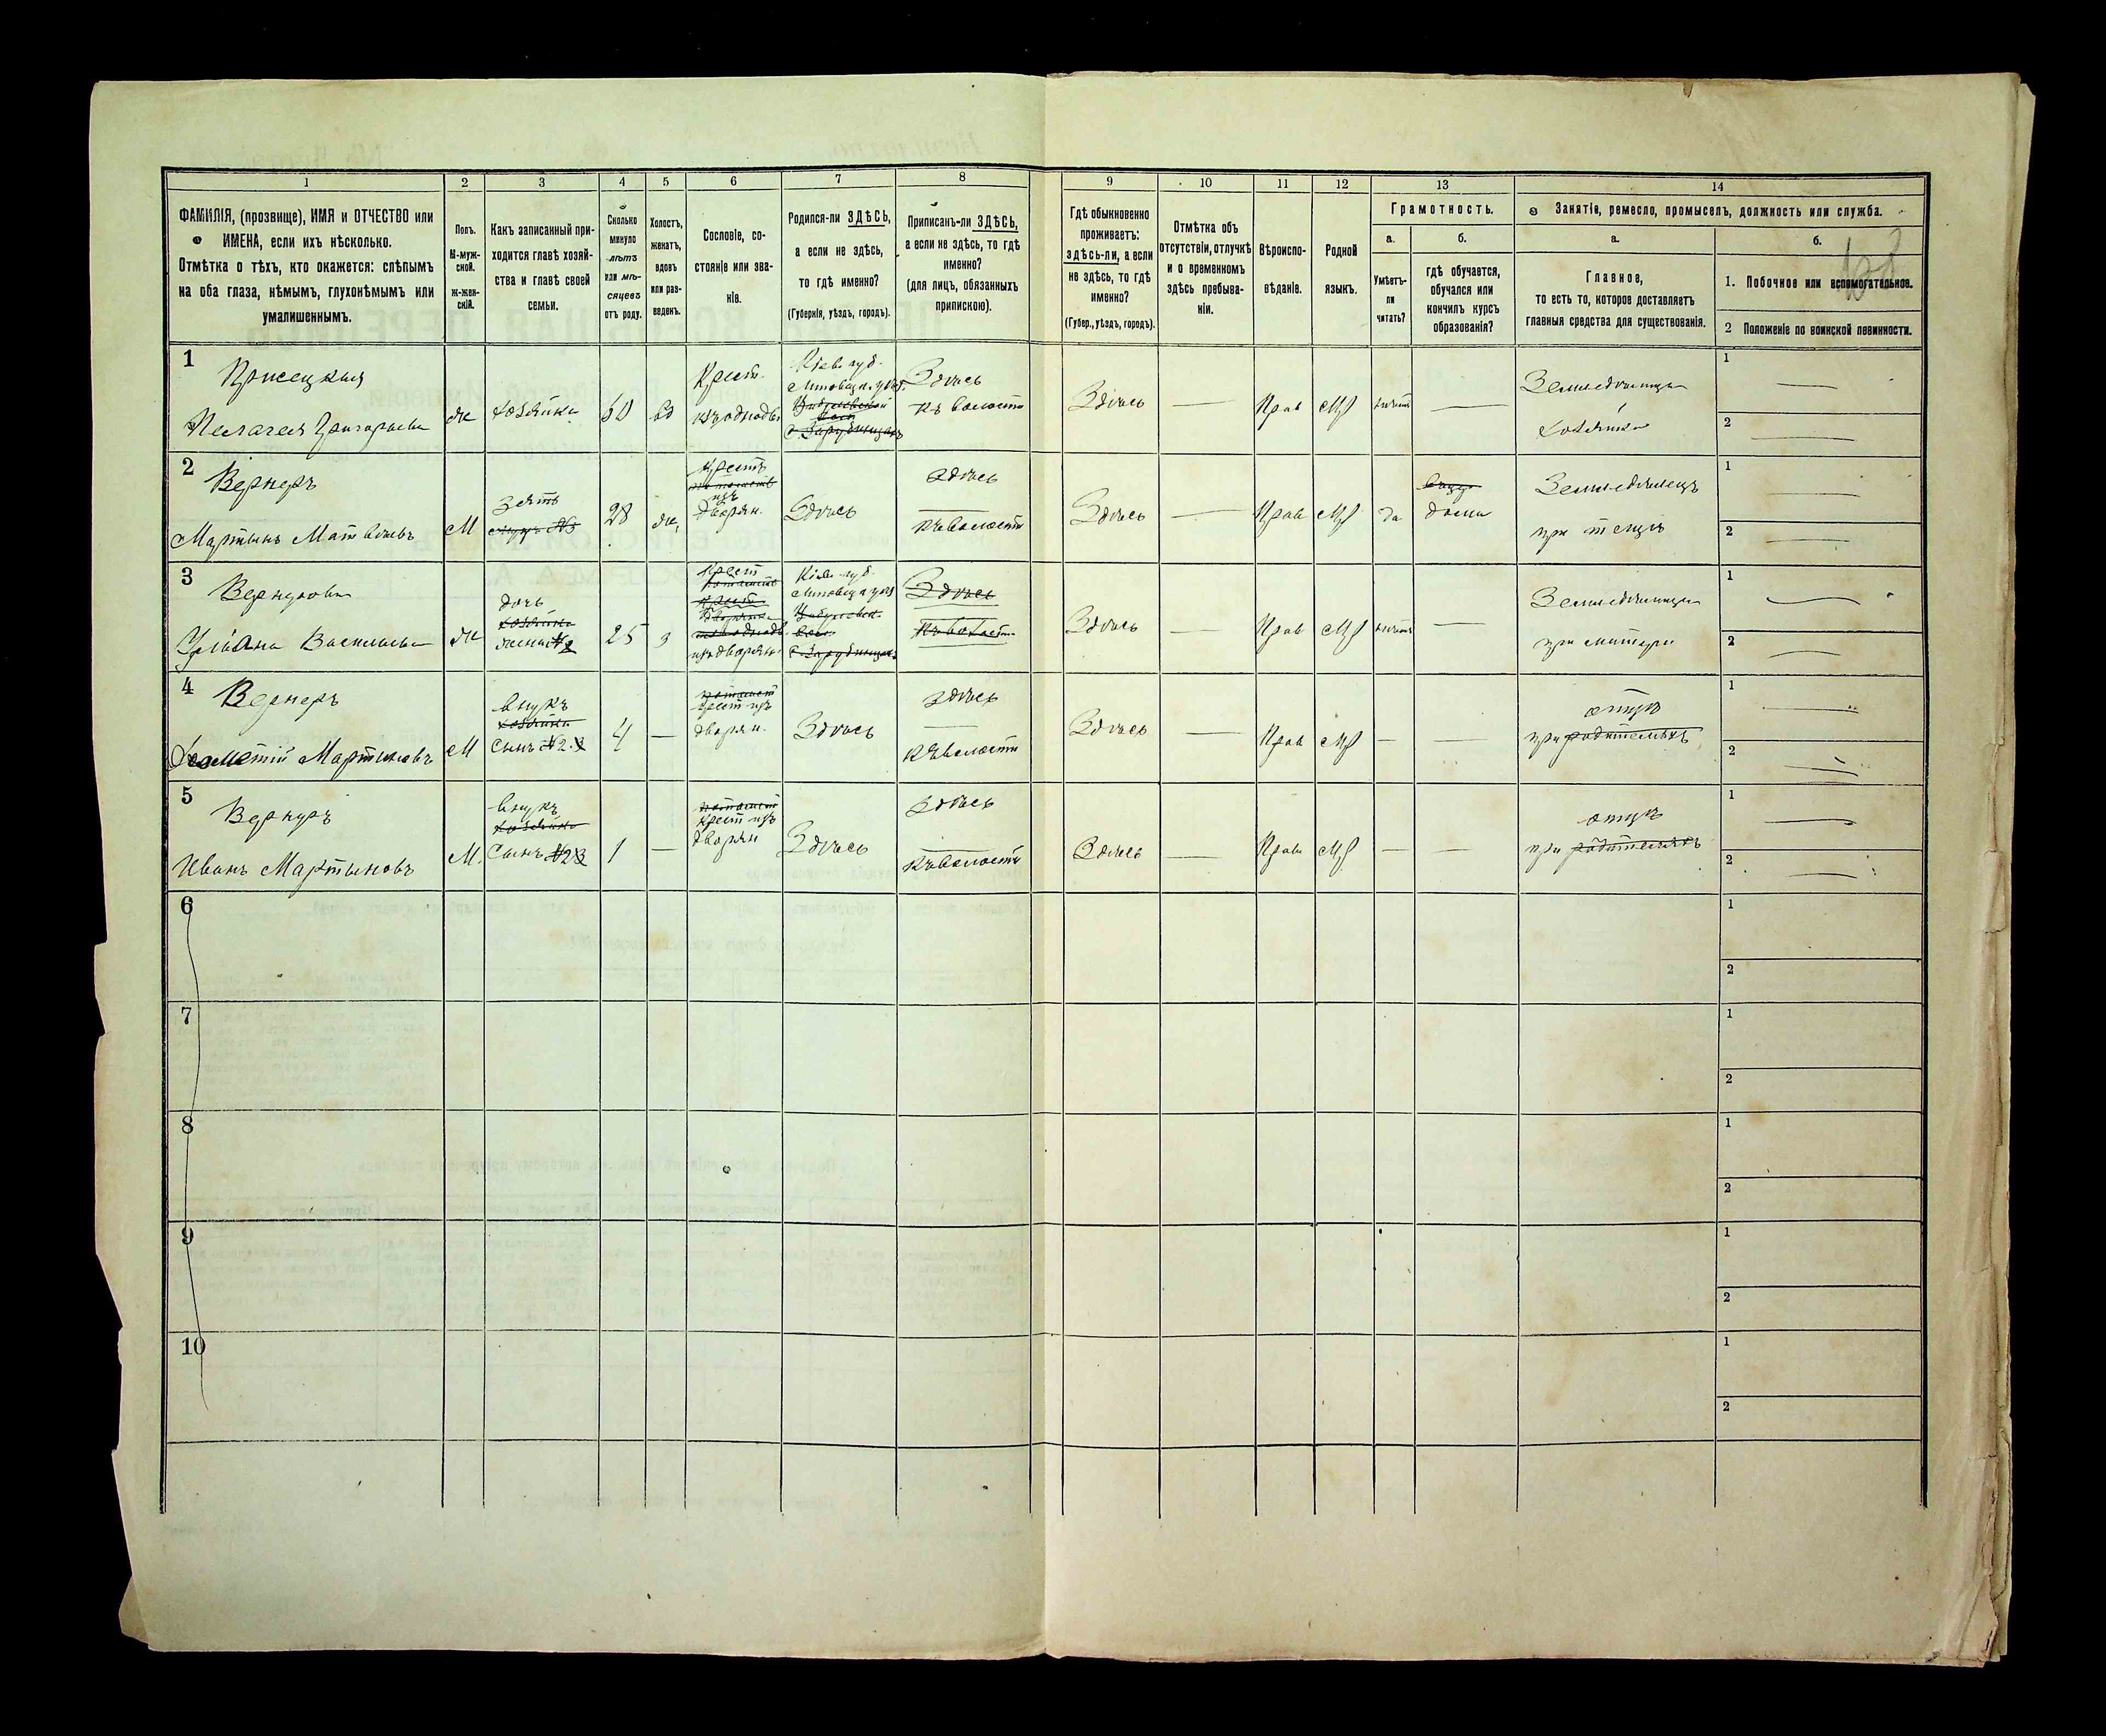 1 2 3 4 5 6 7 8 9 10 11 12 13 14
ФАМИЛІЯ, (прозвище), ИМЯ и ОТЧЕСТВО или
ИМЕНА, если ихъ нѣсколько.
Отмѣтка о тѣхъ, кто окажется: слѣпымъ
на оба глаза, нѣмымъ, глухонѣмымъ или
умалишеннымъ.
Полъ.
М-муж-
ской.
ж-жен-
скій.
Какъ записанный при-
ходится главѣ хозяй-
ства и главѣ своей
семьи.
Сколько
минуло
лѣтъ
или мѣ-
сяцевъ
отъ роду.
Холостъ,
женатъ,
вдовъ
или раз-
веденъ.
Сословіе, со-
стояніе или зва-
ніе.
Родился-ли ЗДѢСЬ,
а если не здѣсь,
то гдѣ именно?
(Губернія, уѣздъ, городъ).
Приписанъ-ли ЗДѢСЬ,
а если не здѣсь, то гдѣ
именно?
(для лицъ, обязанныхъ
припискою).
Гдѣ обыкновенно
проживаетъ:
здѣсь-ли, а если
не здѣсь, то гдѣ
именно?
(Губер., уѣздъ, городъ).
Отмѣтка объ
отсутствіи, отлучкѣ
и о временномъ
здѣсь пребыва-
ніи.
Вѣроиспо-
вѣданіе.
Родной
языкъ.
Грамотность.
а.
Умѣетъ-
ли
читать?
б.
гдѣ обучается,
обучался или
кончилъ курсъ
образованія?
Занятіе, ремесло, промыселъ, должность или служба.
а.
Главное,
то есть то, которое доставляетъ
главныя средства для существованія.
б.
1. Побочное или вспомогательное.
2 Положеніе по воинской повинности.
1
Пелагея Григорьева
ж
хозяйка
60
вд
Крест.
Кіев. губ.
Здѣсь
къ волости
Здѣсь
Прав
Мр
Земледѣлица
хозяйка
1
2
2
Вернеръ
Мартынъ Матвѣевъ
М
Зять
28
ж,
Крестъ
изъ
дворян.
Здѣсь
Здѣсь
къ волости
Здѣсь
Прав
Мр
да
дома
Земледѣлецъ
при тещѣ
1
2
3
Ульяна Васильева
ж
дочь
25
з
Крест
изъ дворян.
Кіев. губ.
Здѣсь
къ волост.
Здѣсь
Прав
Мр
Земледѣлица
при матери
1
2
4
Вернеръ
Мартыновъ
М
внукъ
хозяйки
сынъ №2
4
—
крест изъ
дворян.
Здѣсь
Здѣсь
къ волости
Здѣсь
Прав
Мр
—
—
отцѣ
при родителяхъ
1
2
5
Вернеръ
Иванъ Мартыновъ
М.
внукъ
хозяйки
сынъ №2
1
—
крест изъ
дворян
Здѣсь
Здѣсь
къ волости
Здѣсь
Прав
Мр
—
—
отцѣ
при родителяхъ
1
2
6
1
2
7
1
2
8
1
2
9
1
2
10
1
2